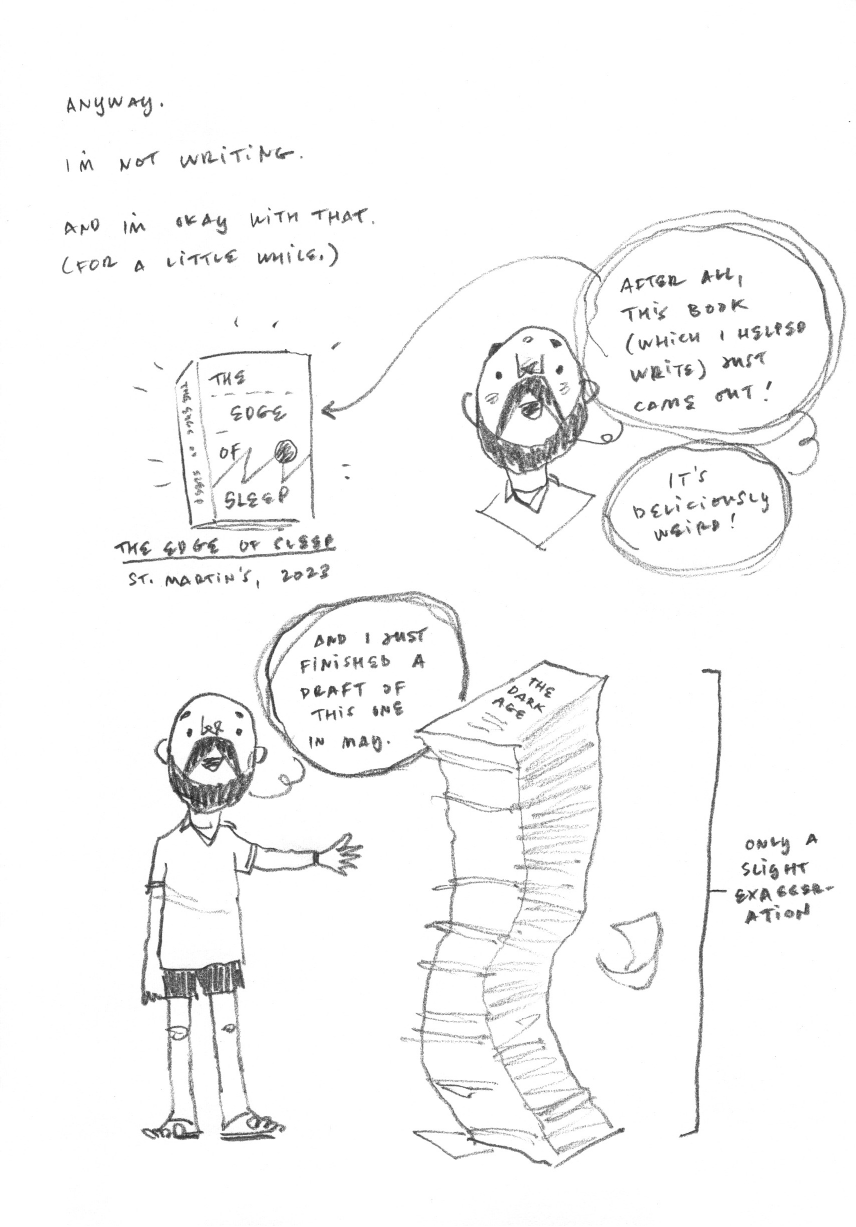 ANYWAY.
I'M NOT WRITING.
AND I'M OKAY WITH THAT.
(FOR A LITTLE WHILE.)
AFTER ALL,
THIS BOOK
(WHICH I HELPED
WRITE) JUST
CAME OUT!
IT'S
DELICIOUSLY
WEIRD!
THE
EDGE
OF
SLEEP
THE EDGE OF SLEEP
THE EDGE OF SLEEP
ST. MARTIN'S, 2023
AND I JUST
FINISHED A
DRAFT OF
THIS ONE
IN MAY.
THE
DARK
AGE
ONLY A
SLIGHT
EXAGGER-
ATION